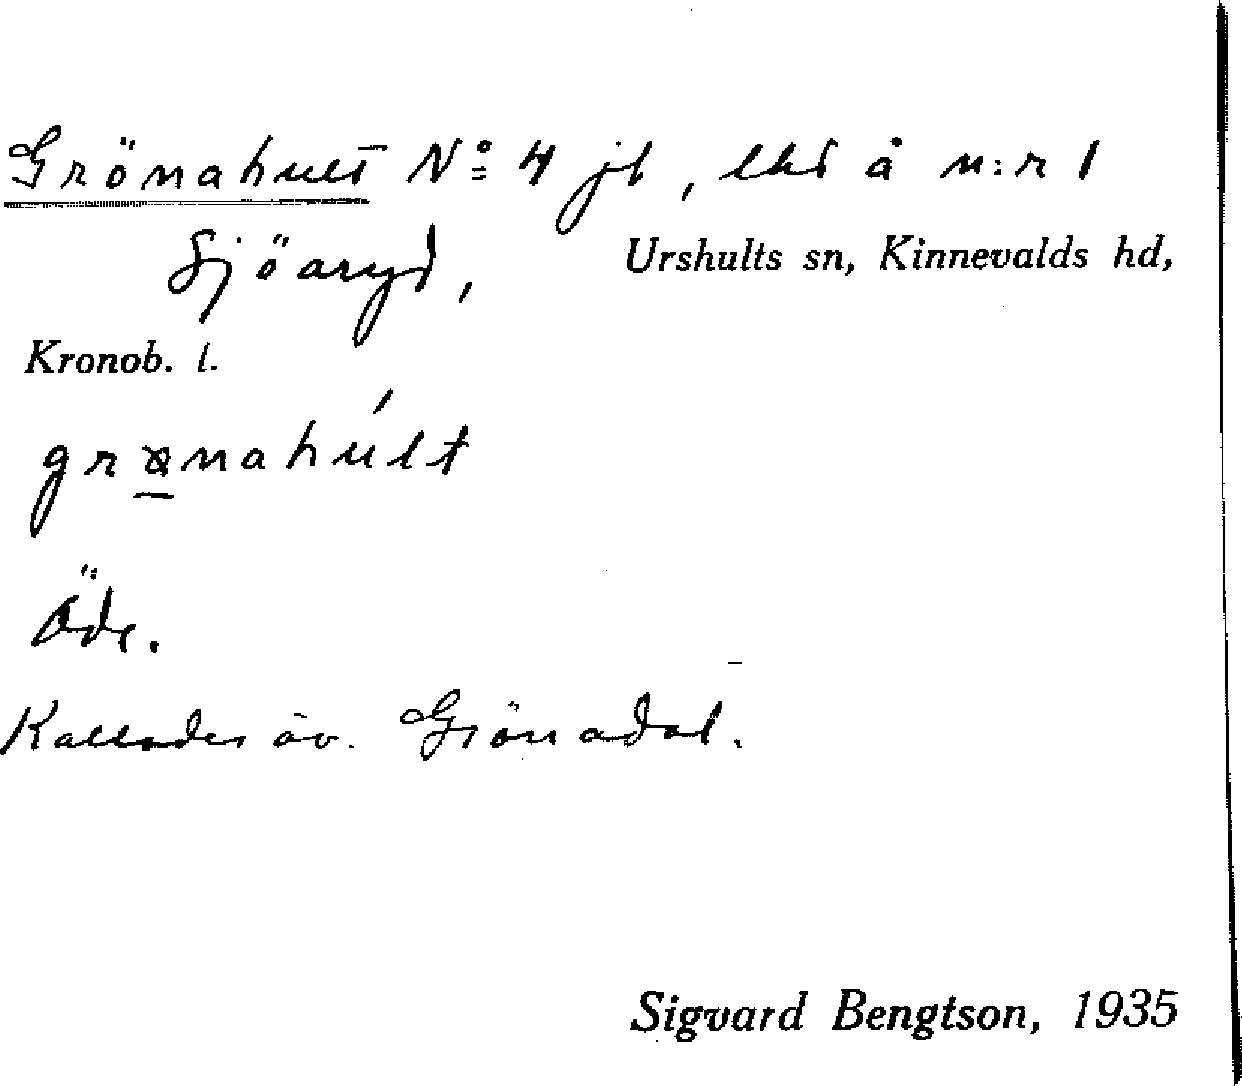 Grönahult No 4 jb, lht å n:r 1
Sjöaryd, Urshults sn, Kinnevalds hd,
Kronob. l.
grønahúlt
Öde.
Kallades äv. Grönadal.
Sigvard Bengtson, 1935